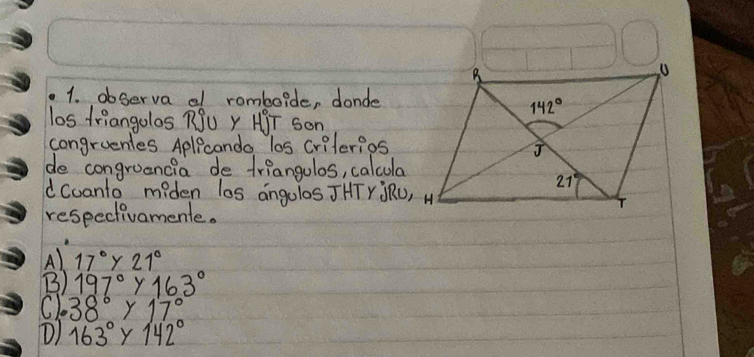 • 1. observa el romboide, donde
los triangulos RJU y HJT son
congruentes Aplicando los criterios
de congruencia de triangulos, calcula
¿Cuanto miden los ángulos JHT y JRU,
respectivamente.
A) 17° y 21°
B) 197° y 163°
C). 38° y 17°
D) 163° y 142°
R
U
142°
J
21°
H
T